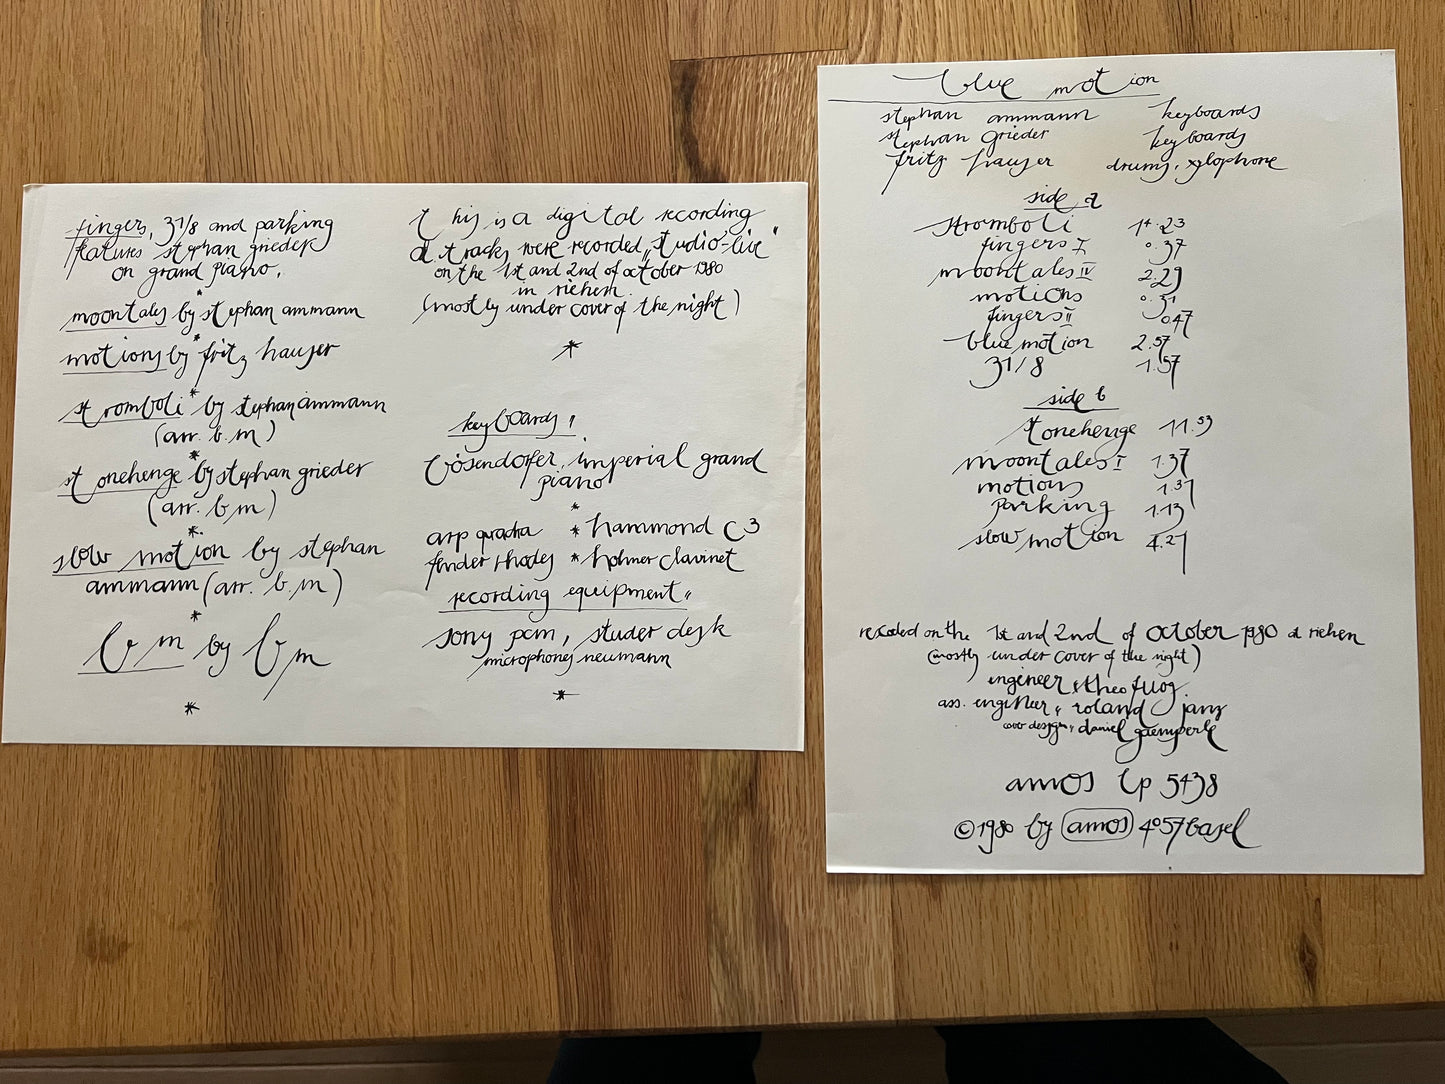 fingers, 31/8 and parking
features stephan grieder
on grand piano.
*
moontales by stephan ammann
*
motions by fritz hauser
*
stromboli by stephan ammann
(arr. b.m)
*
stonehenge by stephan grieder
(arr. b.m)
*
slow motion by stephan
ammann (arr. b.m)
*
b m by b m
*
This is a digital recording
all tracks were recorded „studio-live"
on the 1st and 2nd of october 1980
in riehen
(mostly under cover of the night)
*
keyboards:
bösendorfer, imperial grand
piano
*
arp quadra * hammond c3
fender rhodes * hohner clavinet
recording equipment:
sony pcm, studer desk
microphones neumann
*
blue motion
stephan ammann keyboards
stephan grieder keyboards
fritz hauser drums, xylophone
side a
stromboli 14.23
fingers I 0.37
moontales IV 2.29
motions 0.31
fingers II 0.47
blue motion 2.57
31/8 1.57
side b
stonehenge 11.53
moontales I 1.37
motions 1.31
parking 1.13
slow motion 4.21
recorded on the 1st and 2nd of october 1980 at riehen
(mostly under cover of the night)
engineer: theo fuog
ass. engineer: roland janz
cover design: daniel gaemperle
amos lp 5438
©1980 by amos 4057 basel